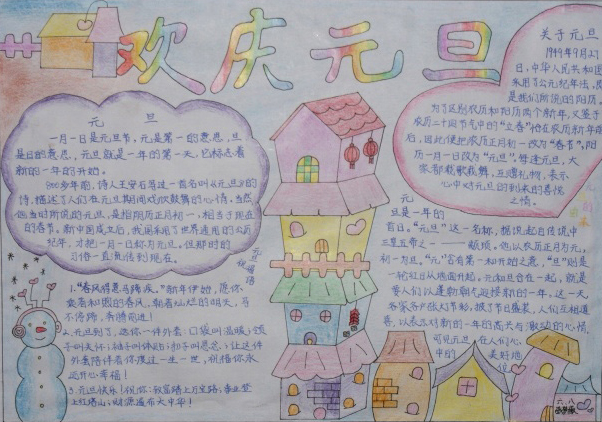 欢庆元旦
元 旦
一月一日是元旦节,元是第一的意思,旦
是日的意思,元旦就是一年的第一天,它标志着
新的一年的开始。
900多年前,诗人王安石写过一首名叫《元旦》的
诗,描述了人们在元旦期间欢欣鼓舞的心情,当然
他当时所说的元旦,是指阴历正月初一,相当于现在
的春节。新中国成立后,我国采用了世界通用的公历
纪年,才把一月一日称为元旦,但那时的
习俗一直流传到现在。
元旦祝福语
1、"春风得意马蹄疾。"新年伊始,愿你
乘着和煦的春风,朝着灿烂的明天,马
不停蹄,奔腾前进!
2、元旦到了,送你一件外套:口袋叫温暖;领
子叫关怀;袖子叫体贴;扣子叫思念;让这件
外套陪伴着你渡过一生一世,祝福你永
远开心幸福!
3、元旦快乐!祝你:致富踏上万宝路;事业登
上红塔山;财源遍布大中华!
关于元旦
1949年9月27
日,中华人民共和国
采用了公元纪年法,即
是我们所说的阳历,
为了区别农历和阳历两个新年,又鉴于
农历二十四节气中的"立春"恰在农历新年前
后,因此便把农历正月初一改为"春节",阳
历一月一日改为"元旦"。每逢元旦,大
家都载歌载舞,互赠礼物,表示
心中对元旦的到来的喜悦
之情。
元
旦是一年的
首日。"元旦"这一名称,据说起自传说中
三皇五帝之一——颛顼,他以农历正月为元,
初一为旦。"元"含有第一和开始之意,"旦"则是
一轮红日从地面升起,元和旦合在一起,就是
要人们以蓬勃朝气迎接新的一年。这一天
各家各户张灯节彩,披了节日盛装,人们互相道
喜,以表达对新的一年的高兴与激动的心情,
可见元旦
在人们心
中的
美好地
位。
六.八